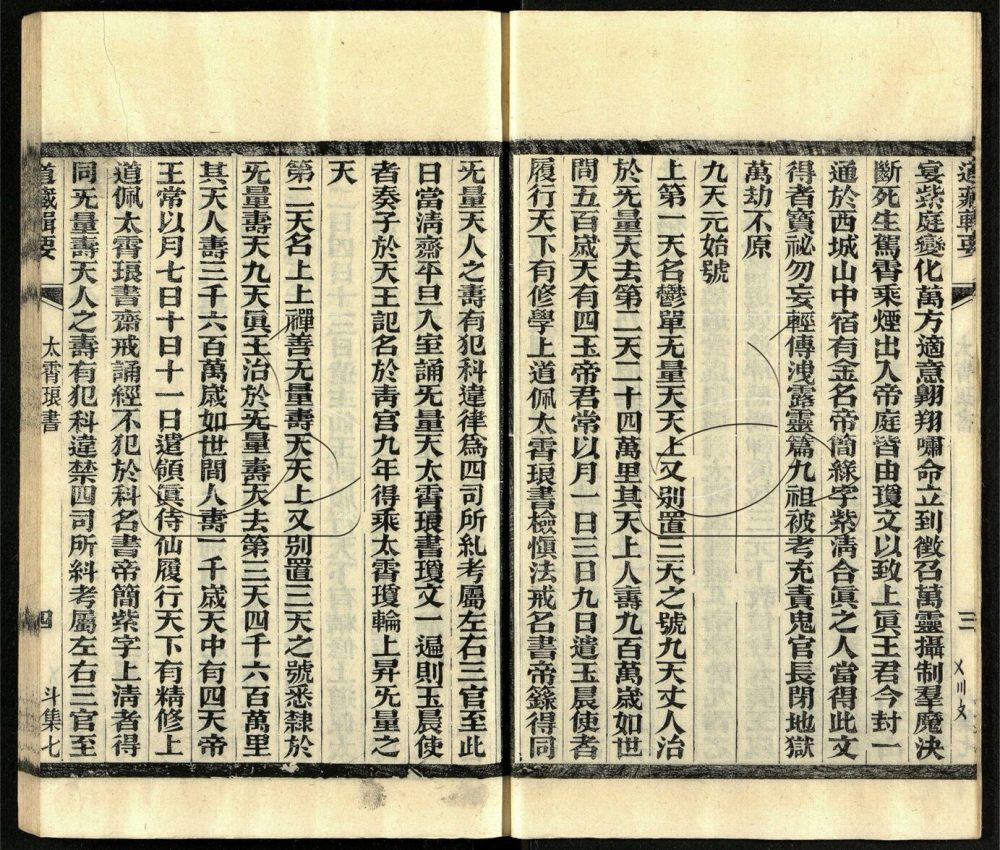 道藏輯要
三
宴紫庭變化萬方適意翱翔嘯命立到徵召萬靈攝制羣魔決
斷死生駕霄乘煙出入帝庭皆由瓊文以致上眞王君今封一
通於西城山中宿有金名帝簡綠字紫淸合眞之人當得此文
得者寶祕勿妄輕傳洩露靈篇九祖被考充責鬼官長閉地獄
萬劫不原
九天元始號
上第一天名鬱單无量天天上又別置三天之號九天丈人治
於无量天去第二天二十四萬里其天上人壽九百萬歲如世
間五百歲天有四玉帝君常以月一日三日九日遣玉晨使者
履行天下有修學上道佩太霄琅書檢愼法戒名書帝籙得同
无量天人之壽有犯科違律爲四司所糺考屬左右三官至此
日當淸齋平旦入室誦无量天太霄琅書瓊文一遍則玉晨使
者奏子於天王記名於靑宮九年得乘太霄瓊輪上昇无量之
天
第二天名上上禪善无量壽天天上又別置三天之號悉隸於
无量壽天九天眞王治於无量壽天去第三天四千六百萬里
其天人壽三千六百萬歲如世間人壽一千歲天中有四天帝
王常以月七日十日十一日遣領眞侍仙履行天下有精修上
道佩太霄琅書齋戒誦經不犯於科名書帝簡紫字上淸者得
同无量壽天人之壽有犯科違禁四司所糾考屬左右三官至
道藏輯要
太霄琅書
四
斗集七